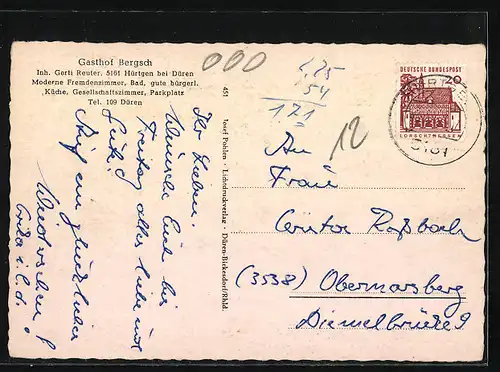 Gasthof Bergsch
Inh. Gerti Reuter, 5161 Hürtgen bei Düren
Moderne Fremdenzimmer, Bad, gute bürgerl.
Küche, Gesellschaftszimmer, Parkplatz
Tel. 109 Düren
000
2,25
54
171
12
DEUTSCHE BUNDESPOST
20
LORSCH/HESSEN
5161
451
Josef Pohlen · Lichtdruckverlag · Düren-Birkesdorf/Rhld.
Ihr Lieben.
Wünsche Euch bis
Freitag alles liebe und
Gute!
Auf ein glückliches
Wiedersehen!
An
Frau
Roßbach
(3538) Obermarsberg
Diemelbrücke 9